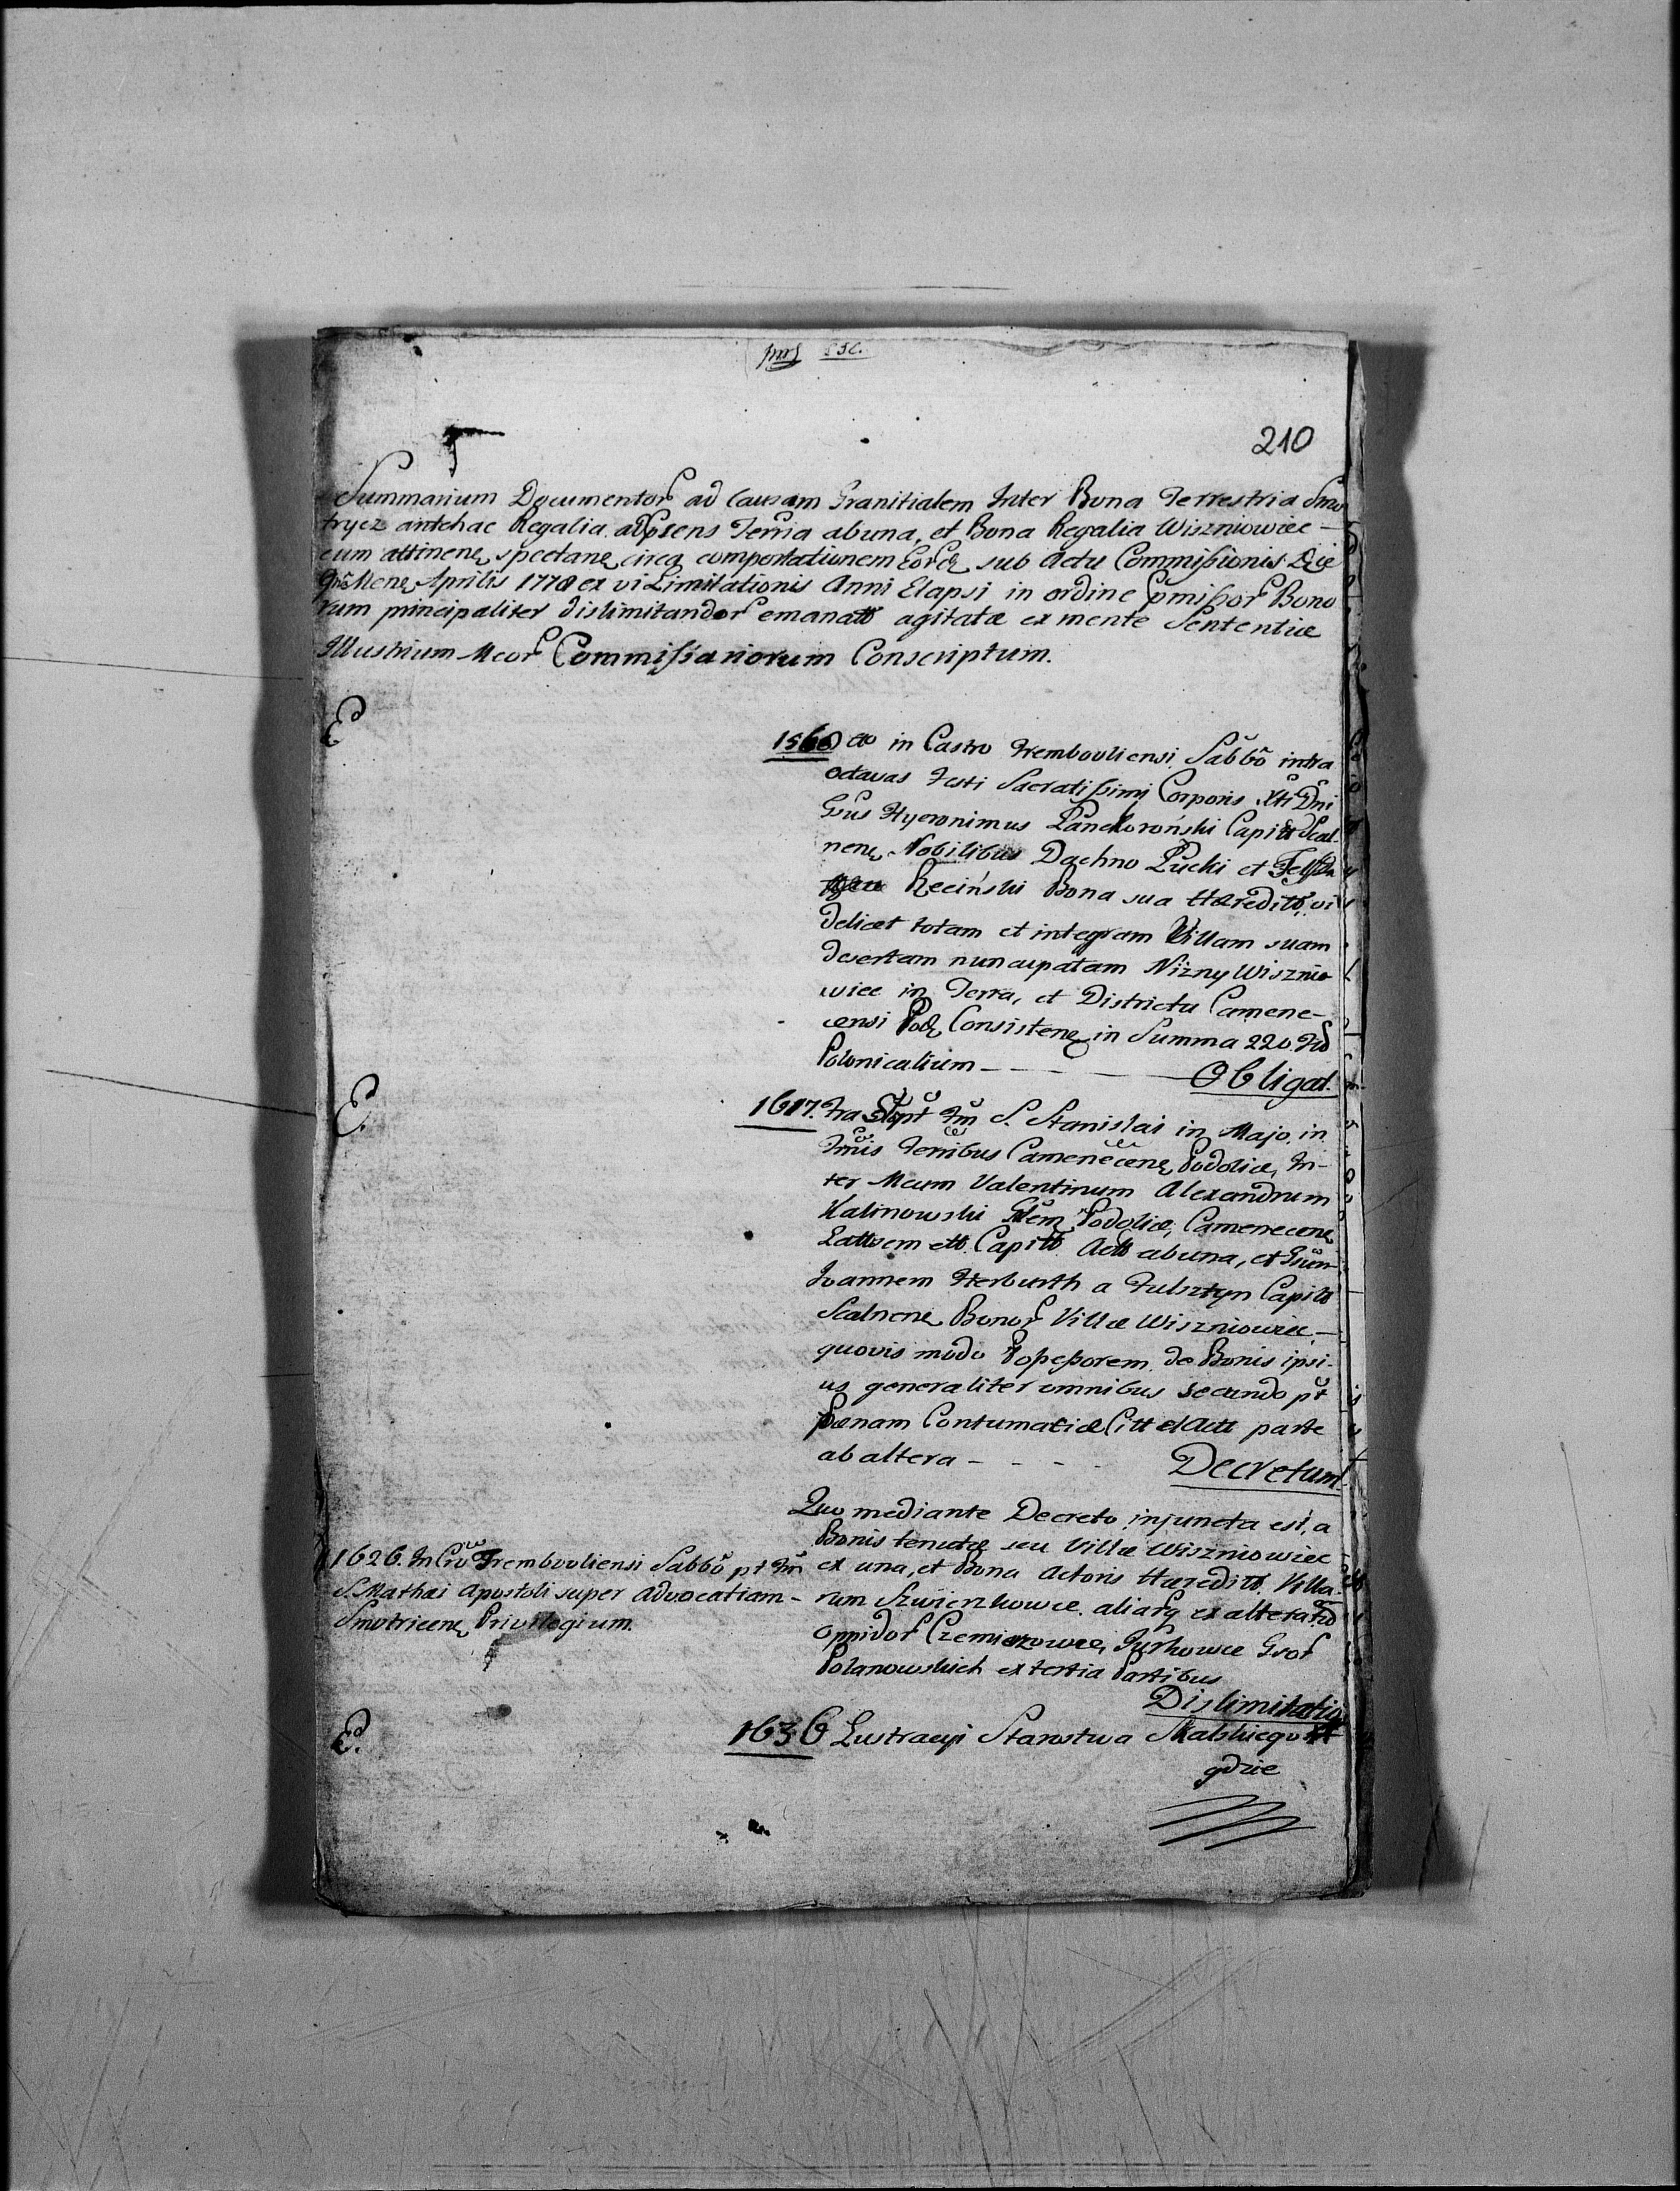 210
Summarium Documentor ad Causam Granitialem Inter Bona Terrestria Smo
trycz antehac Regalia ad Terria abuna, et Bona Regalia Wiszniowiec –
cum attinen spectan circa comportationem sub Actu Commissionis Die
Mene Aprilis 1778 ex vi Limitationis Anni Elapsi in ordine pmissor Bono
rum principaliter dislimitandor emanatt agitatæ ex mente Sententiæ
Illustrium Mcor Commissariorum Conscriptum.
E
1566 in Castro Trembovliensi Sabbo intra
octavas Festi Sacratissimi Corporis Xti Dni
Gsus Hyeronimus Lanckoroński Capitt Scal-
nen Nobilibus Dachno Łucki et
Rzeciński Bona sua Hæreditt, vi
delicet totam et integram Villam suam
desertam nuncupatam Nizny Wisznio
wiec in Terra, et Districtu Camene-
censi Pod Consisten in Summa 220.
Polonicalium – – – – Obligat.
E.
1617. Fra pt Fm S. Stanislai in Majo in
Tmis Terribus Camenecen Podoliæ, In-
ter Mcum Valentinum Alexandrum
Kalinowski Podoliæ, Camenecen
Capitt Actt abuna, et
Joannem Herburth a Fulsztyn Capitt
Scalnen Bonor Villæ Wiszniowiec –
quovis modo Possessorem de Bonis ipsi-
us generaliter omnibus secundo pt
Pænam Contumaciæ Citt et Actt parte
ab altera – – – – Decretum.
Quo mediante Decreto injuncta est, a
Bonis tenutæ seu Villæ Wiszniowiec
ex una, et Bona Actoris Hæreditt. Villa-
rum Szwierzkowce aliarq ex altera
Oppidor Czemierzowce, Jurkowce Gsor
Polanowskich ex tertia Partibus
Dislimitatio
1626. In Trembovliensi Sabbo pt Fm
S. Mathæi Apostoli super Advocatiam –
Smotricen Privilegium.
E.
1636 Lustracyi Starostwa Skalskiego
gdzie